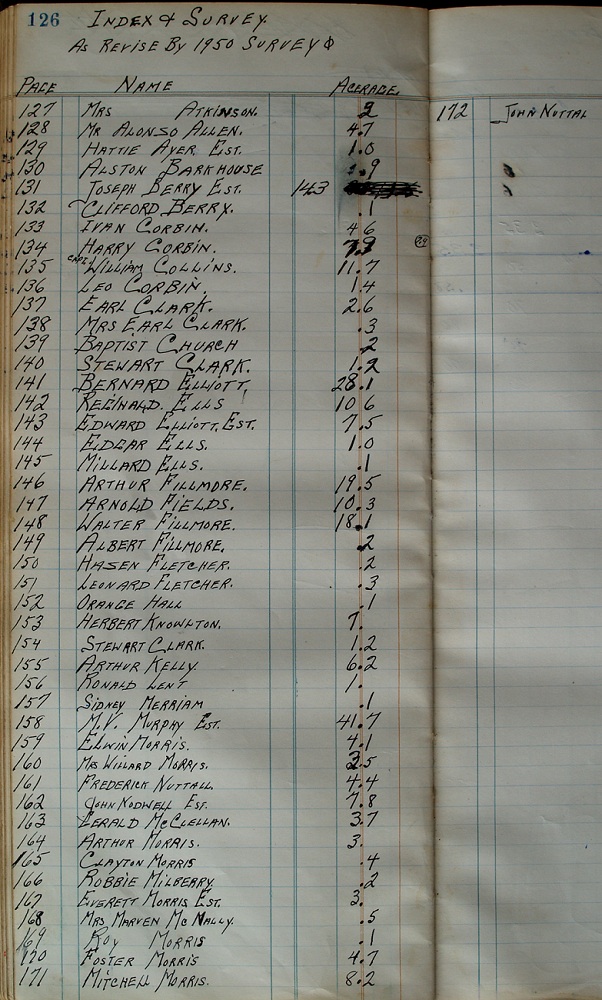 126 INDEX & SURVEY.
AS REVISE BY 1950 SURVEY
PAGE NAME ACERAGE.
127 MRS ATKINSON. .2
128 MR ALONSO ALLEN. 4.7
129 HATTIE AYER EST. 1.0
130 ALSTON BARKHOUSE .9
131 JOSEPH BERRY EST. 143
132 CLIFFORD BERRY. .1
133 IVAN CORBIN. 4.6
134 HARRY CORBIN. 7.9
135 CAPT. WILLIAM COLLINS. 11.7
136 LEO CORBIN. 1.4
137 EARL CLARK. 2.6
138 MRS EARL CLARK. .3
139 BAPTIST CHURCH .2
140 STEWART CLARK. 1.2
141 BERNARD ELLIOTT, 28.1
142 REGINALD. ELLS 10.6
143 EDWARD ELLIOTT, EST. 7.5
144 EDGAR ELLS. 1.0
145 MILLARD ELLS. .1
146 ARTHUR FILLMORE. 19.5
147 ARNOLD FIELDS. 10.3
148 WALTER FILLMORE. 18.1
149 ALBERT FILLMORE. .2
150 HASEN FLETCHER. .2
151 LEONARD FLETCHER. .3
152 ORANGE HALL .1
153 HERBERT KNOWLTON. 7.
154 STEWART CLARK. 1.2
155 ARTHUR KELLY. 6.2
156 RONALD LENT 1.
157 SIDNEY MERRIAM .1
158 M.V. MURPHY EST. 41.7
159 ELWIN MORRIS. 4.1
160 MRS WILLARD MORRIS. .5
161 FREDERICK NUTTALL. 4.4
162 JOHN NODWELL EST. 7.8
163 GERALD MCCLELLAN. 3.7
164 ARTHUR MORRIS. 3.
165 CLAYTON MORRIS .4
166 ROBBIE MILBERRY. .2
167 EVERETT MORRIS EST. 3.
168 MRS MARVEN MCNALLY. .5
169 ROY MORRIS .1
170 FOSTER MORRIS 4.7
171 MITCHELL MORRIS. 8.2
172 JOHN NUTTAL